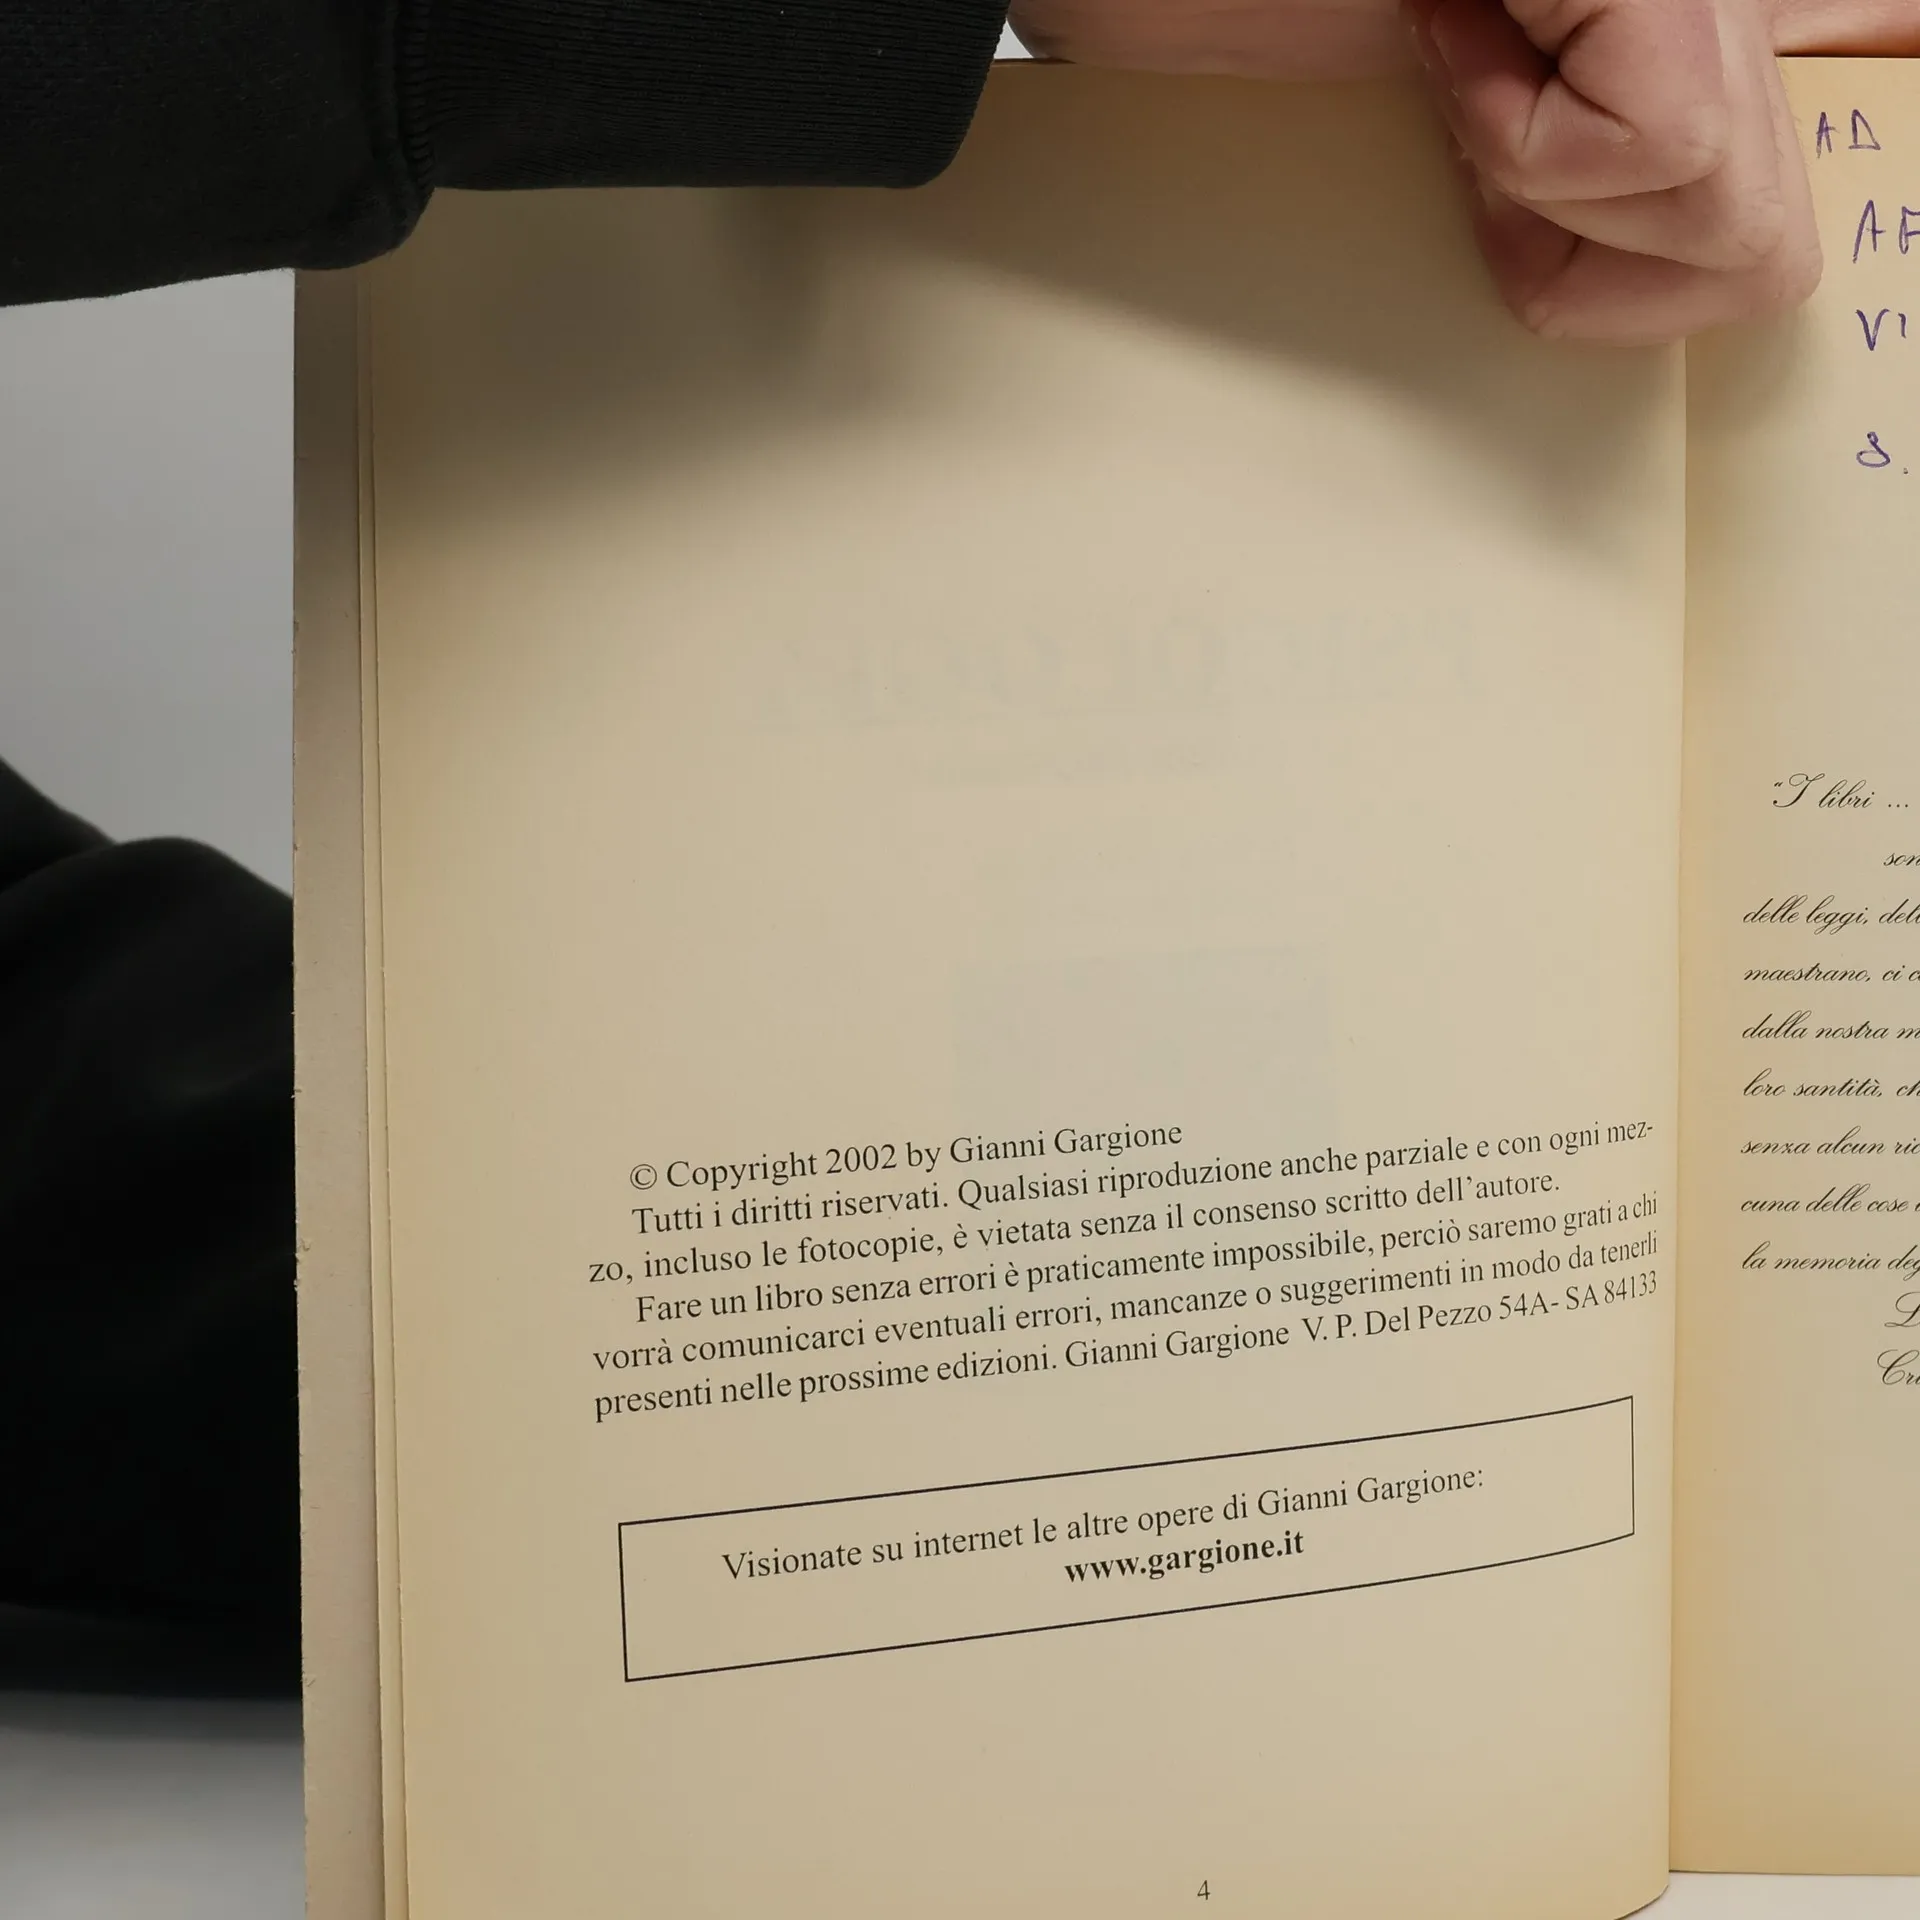 © Copyright 2002 by Gianni Gargione
Tutti i diritti riservati. Qualsiasi riproduzione anche parziale e con ogni mez-
zo, incluso le fotocopie, è vietata senza il consenso scritto dell'autore.
Fare un libro senza errori è praticamente impossibile, perciò saremo grati a chi
vorrà comunicarci eventuali errori, mancanze o suggerimenti in modo da tenerli
presenti nelle prossime edizioni. Gianni Gargione V. P. Del Pezzo 54A- SA 84133
Visionate su internet le altre opere di Gianni Gargione:
www.gargione.it
4
AD
"I libri ...
delle leggi, 
maestrano, ci
dalla nostra
loro santità,
senza alcun
cuna delle cose
la memoria